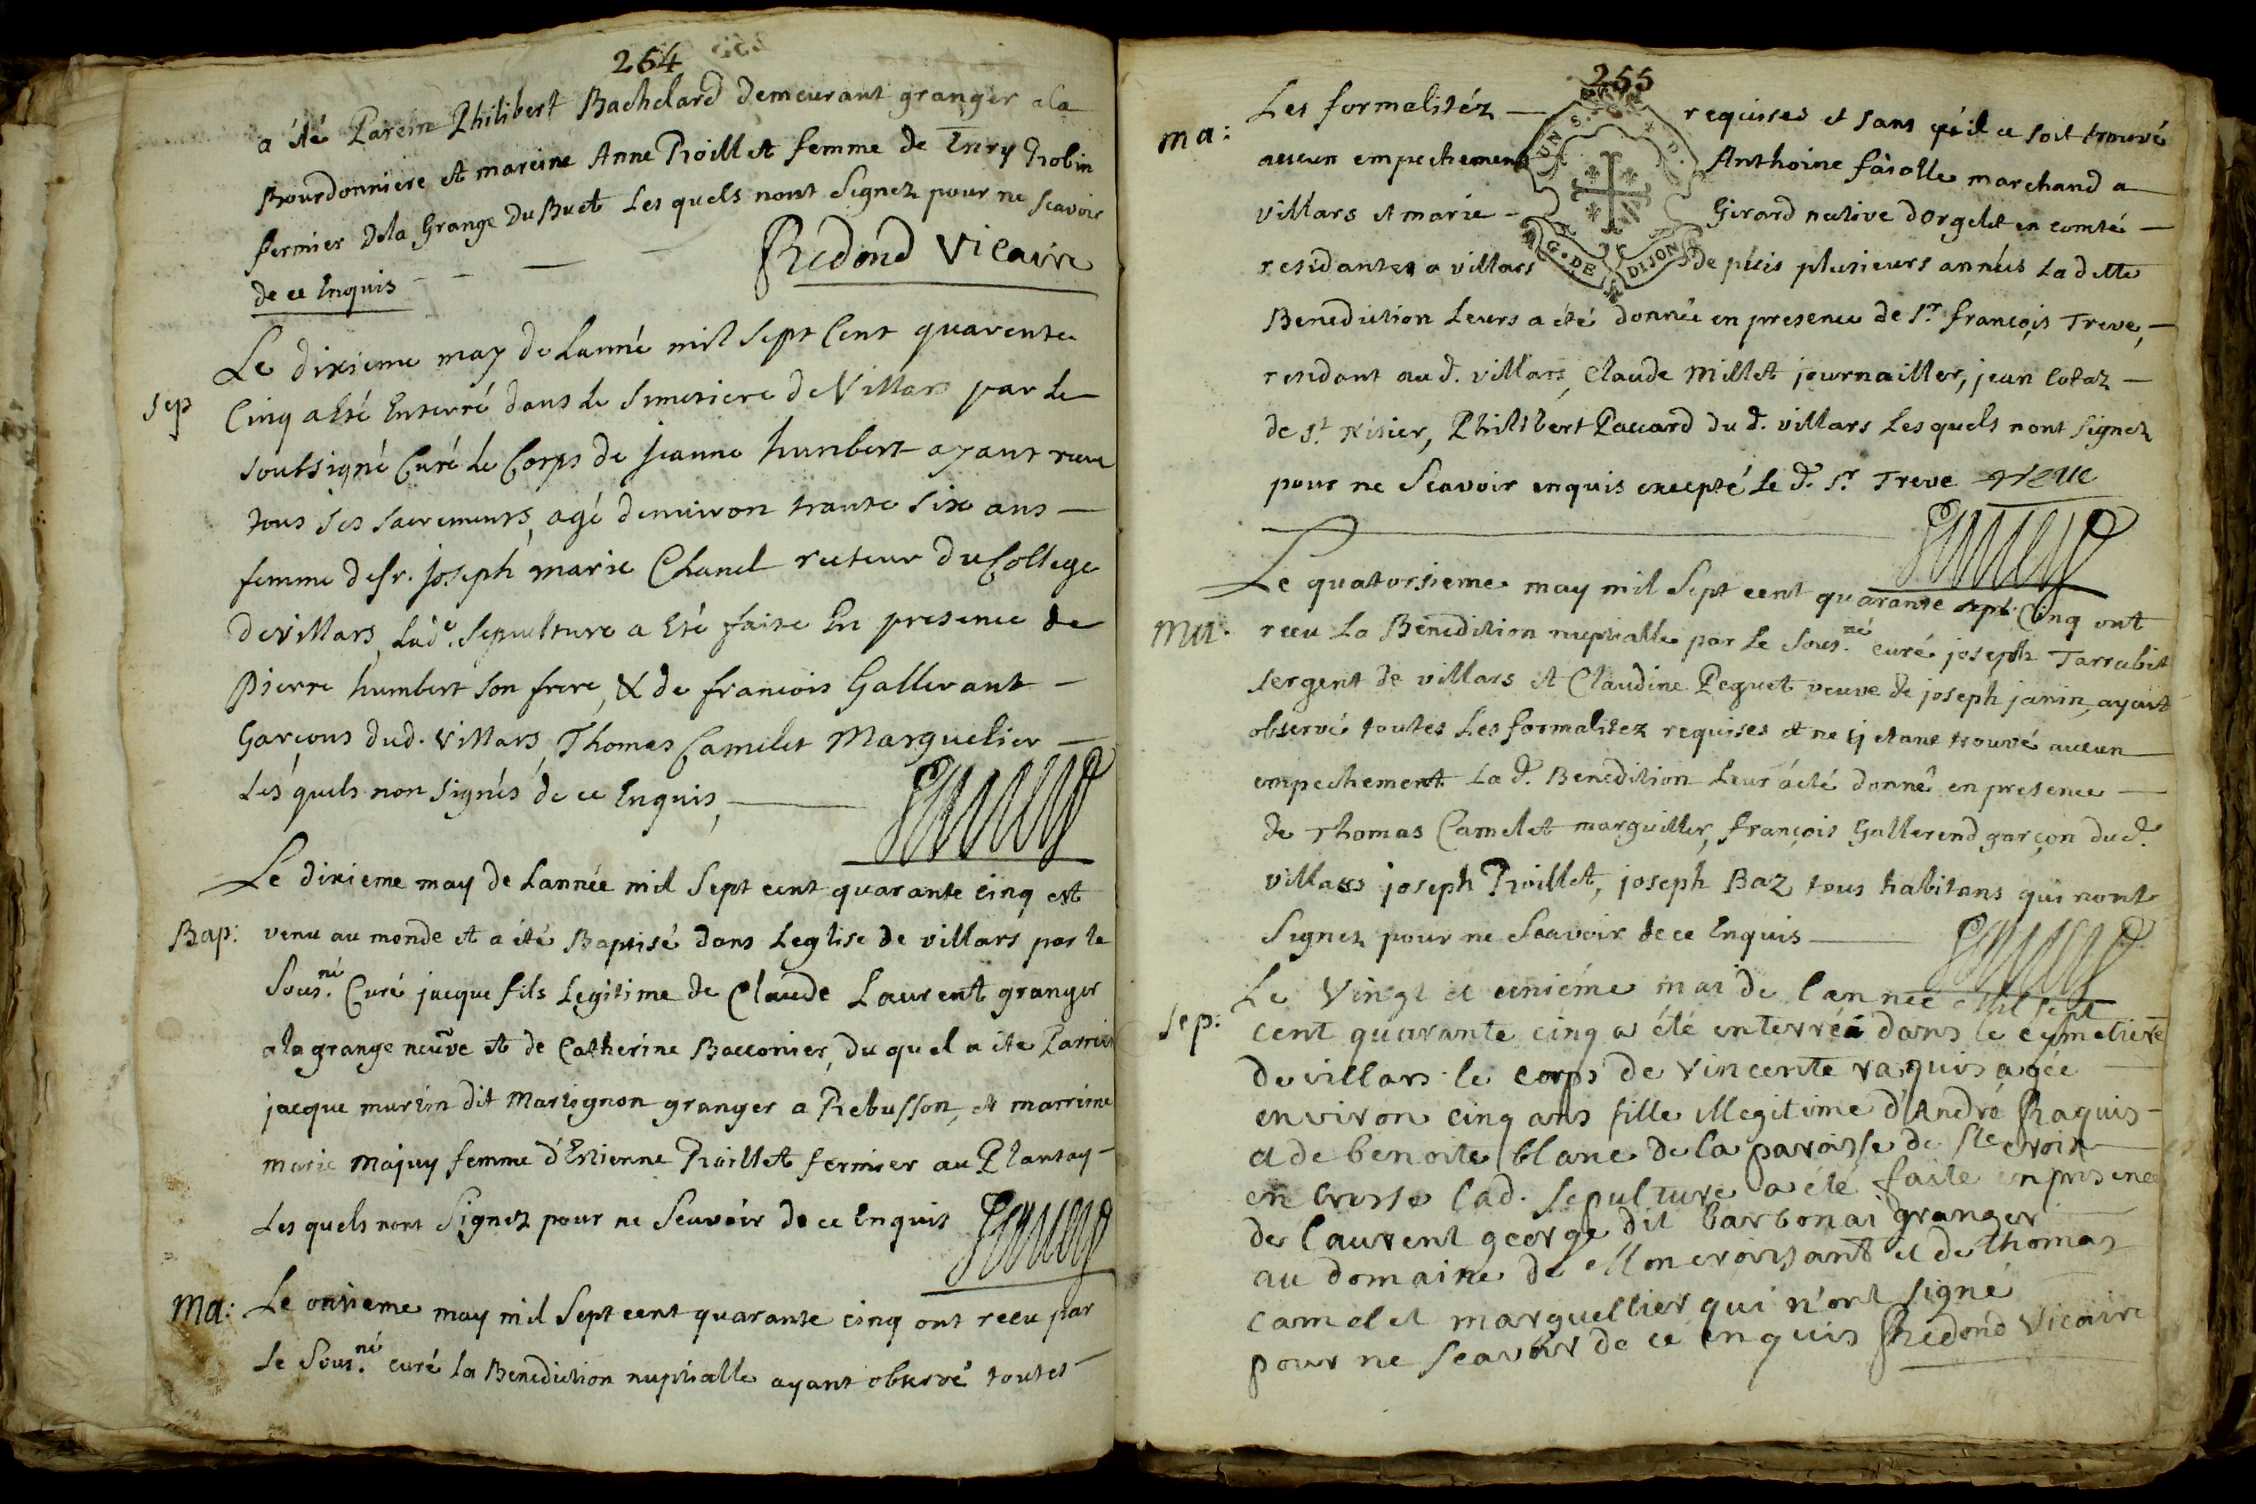 264
a été Parein Philibert Bachelard demeurant granger a la
Bourdonniere et mareine Anne Roillet femme de Enry Robin
fermier dela Grange Du Buet Les quels nont Signez pour ne scavoir
de ce Enquis
Redond Vicaire
Sep
Le dixieme may de Lanné mil Sept Cent quarente
Cinq a Eté Enterré dans le Simetiere de Villars par Le
soubsigné Curé le Corps de jeanne humbert ayant receu
tous ses sacrements, agé denviron trante six ans —
femme de sr. joseph marie Chanel recteur Du College
de Villars, Lade. Sepulture a Eté faite En presence de
Pierre humbert son frere, & de francois Gallerant —
Garçons dud. Villars, Thomas Camelet Marguelier —
Les quels non signés de ce Enquis, —
Bap:
Le dixieme may de Lannée mil Sept cent quarante cinq est
venu au monde et a été Baptisé dans Leglise de villars par le
Sous.né Curé jacque fils Legitime de Claude Laurent granger
a la grange neuve et de Catherine Bacconier, du quel a ete Parrein
jacque murtin dit Martignon granger a Rebusson, et marrine
marie majuy femme d'Etienne Roillet fermier au Plantay —
Les quels nont Signez pour ne Scavoir de ce Enquis
Ma:
Le onzieme may mil Sept cent quarante cinq ont receu par
le Sous.né curé la Benediction nuptialle ayant observé toutes —
255
ma:
Les formalitéz — requises et sans qu'il ce soit trouvé
aucun empechement Anthoine fasolle marchand a
villars et marie — Girard native d'Orgelet en comté —
residantes a villars de puis plusieurs annéis La ditte
UN S. D.
G. DE DIJON
Benediction Leurs a été donnée en presence de Sr. françois Treve, —
residant au d. villars, Claude Millet journaillier, jean Cotaz —
de St. Nisier, Philibert Paccard du d. villars Les quels nont Signez
pour ne Scavoir enquis excepté Le d. Sr. Treve treve
Ma.
Le quatorsieme may mil Sept cent quarante sept Cinq ont
receu La Benedition nuptialle par Le Sous.né curé joseph Tarrabit
sergent de villars et Claudine Peguet veuve de joseph janin, ayant
observé toutes Les formalitez requises et ne ij etant trouvé aucun
empechement La d. Benedition Leur a été donné en presence —
de Thomas Camelet marguiller, françois Gallerend garçon du d.
villars joseph Roillet, joseph Baz tous habitans qui nont
Signez pour ne Scavoir de ce Enquis —
Sep:
Le Vingt et uniéme mai de l'année Mil sept
cent quarante cinq a été enterrée dans le cymetiere
de villars le corps de vincente raquis agée —
environ cinq ans fille illegitime d'André Raquis —
et de benoite blanc de la paroisse de Ste croix
en bresse lad. sepulture a été faite en presence
de laurent george dit barbonai granger
au domaine de Moncroissant et de thomas
camelet marguellier qui n'ont signé
pour ne scavoir de ce enquis Redond Vicaire